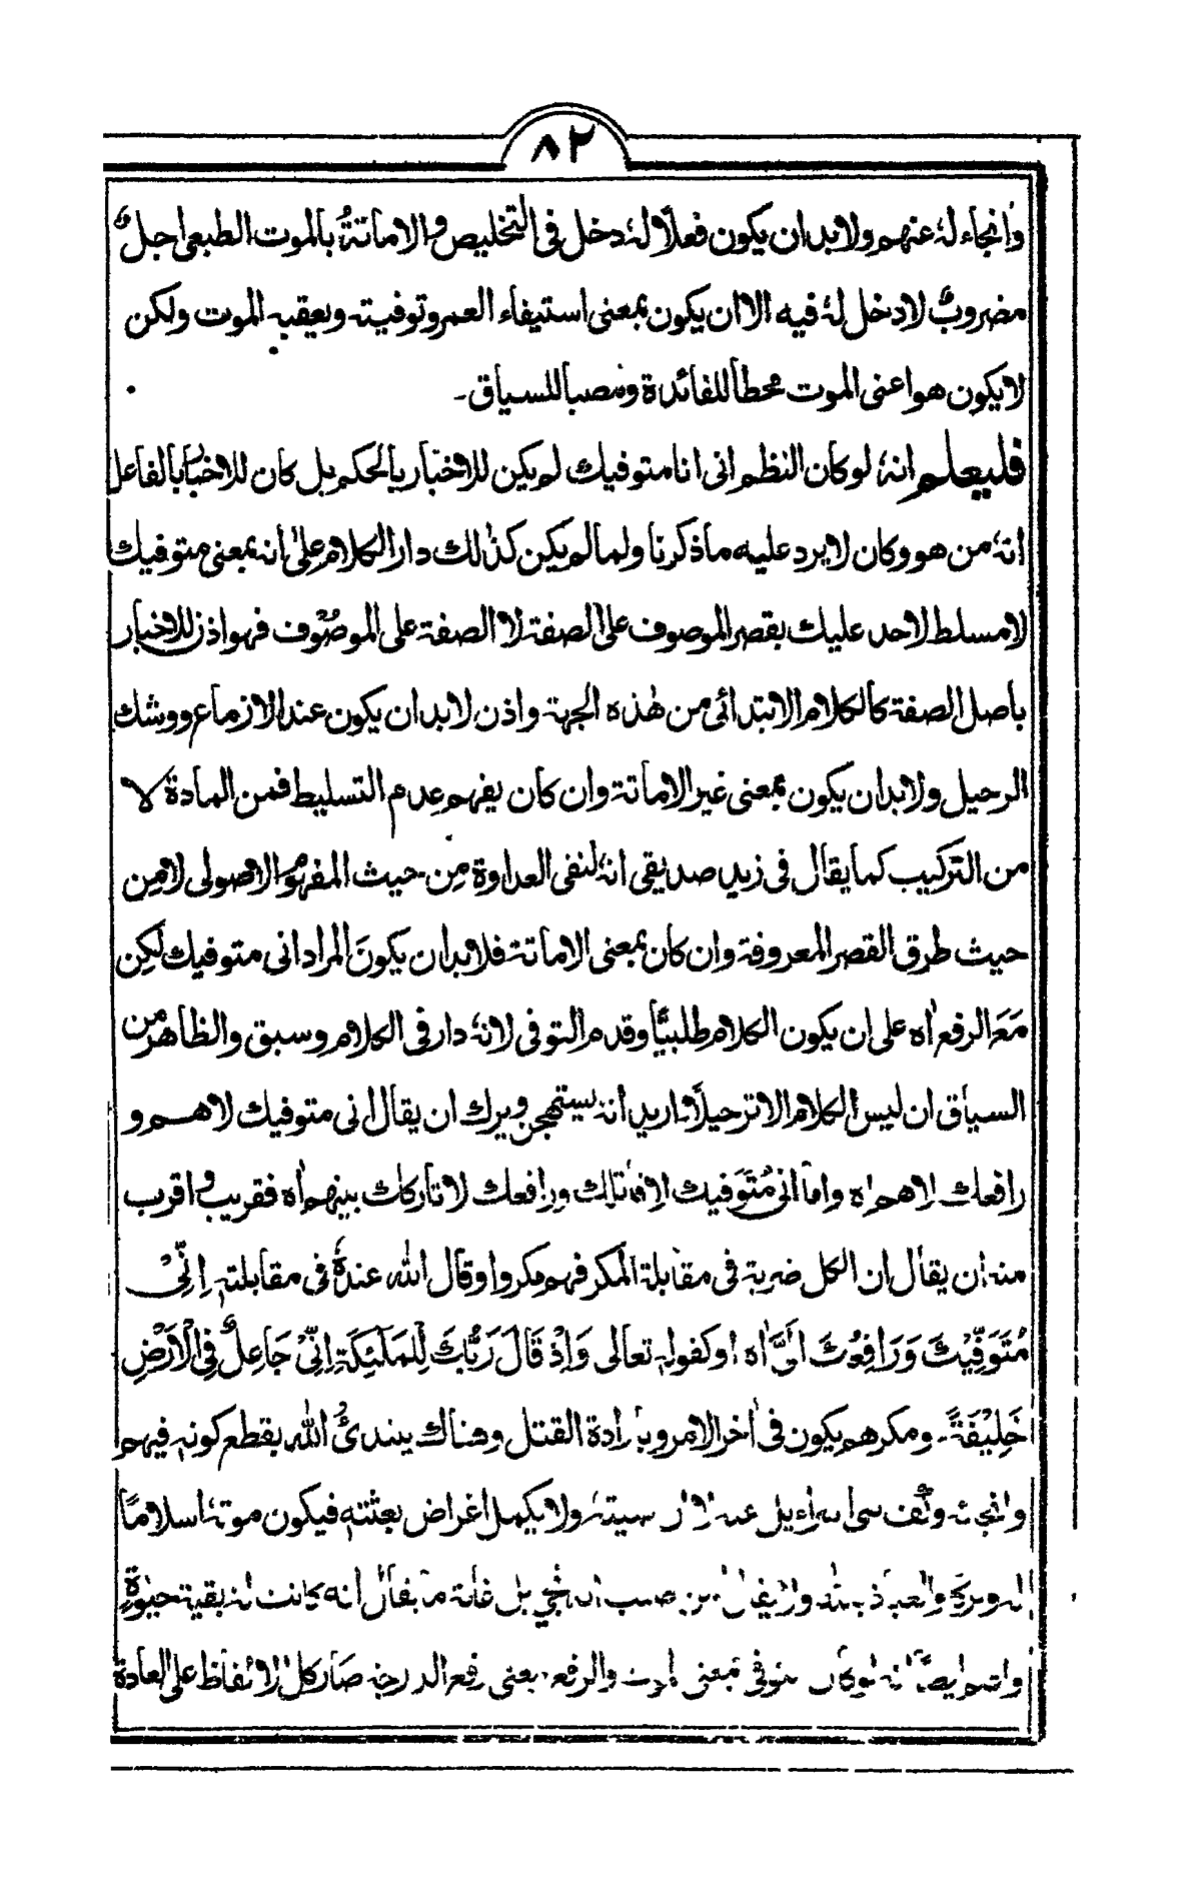 ٨٢
وانجاء لهٗ عنهم ولا بد ان يكون فعلًا لهٗ دخل فى التخليص والاماتةُ بالموت الطبعى اجلٌ
مضروبٌ لا دخل لهٗ فيه الا ان يكون بمعنى استيفاء العمر وتوفيته ويعقبه الموت ولكن
لا يكون هو اعنى الموت محطاً للفائدة ومصباً للسياق۔
فليعلم انهٗ لو كان النظم انى انا متوفيك لم يكن للاخبار بالحكم بل كان للاخبار بالفاعل
انهٗ من هو وكان لا يرد عليه ما ذكرنا ولما لم يكن كذٰلك دار الكلام علىٰ انه بمعنى متوفيك
لا مسلط لاحد عليك بقصر الموصوف على الصفة لا الصفة على الموصوف فهو اذن للاخبار
باصل الصفة كالكلام الابتدائى من هٰذه الجهة واذن لا بد ان يكون عند الازماع ووشك
الرحيل ولا بد ان يكون بمعنى غير الاماتة وان كان يفهم عدم التسليط فمن المادة لا
من التركيب كما يقال فى زيد صديقى انهٗ لنفى العداوة مِن حيث المفهوم الاصولى لا مِن
حيث طرق القصر المعروفة وان كان بمعنى الاماتة فلا بد ان يكونَ المراد انى متوفيك لكِن
مَعَ الرفع اه على ان يكون الكلام طلبيًّا وقدم التوفى لانهٗ دار فى الكلام وسبق والظاهر من
السياق ان ليس الكلام الا ترحيلًا اريد انه يستهجن ويرك ان يقال انى متوفيك لا هم و
رافعك لا هم اه واما انى مُتَوَفيك لا قاتلك ورافعك لا تاركك بينهم اه فقريب واقرب
منه ان يقال ان الكل ضربة فى مقابلة المكر فهم مكروا وقال الله عندهٗ فى مقابلته اِنِّىْ
مُتَوَفِّيْكَ وَرَافِعُكَ اِلَىَّ اه او كقوله تعالى وَاِذْ قَالَ رَبُّكَ لِلْمَلٰٓئِكَةِ اِنِّىْ جَاعِلٌ فِى الْاَرْضِ
خَلِيْفَةً۔ ومكرهم يكون فى اٰخر الامر وبارادة القتل وهناك يبتدئُ الله بقطع كونه فيهم
وانجائه وكف بنى اسرائيل عنه ولا يكمل اغراض بعثته فيكون موتهٗ اسلامًا
بل غاية ما يقال انه كانت له بقية حيٰوةٍ
بمعنى والرفع بمعنى رفع الدرجة صار كل الالفاظ على العادة